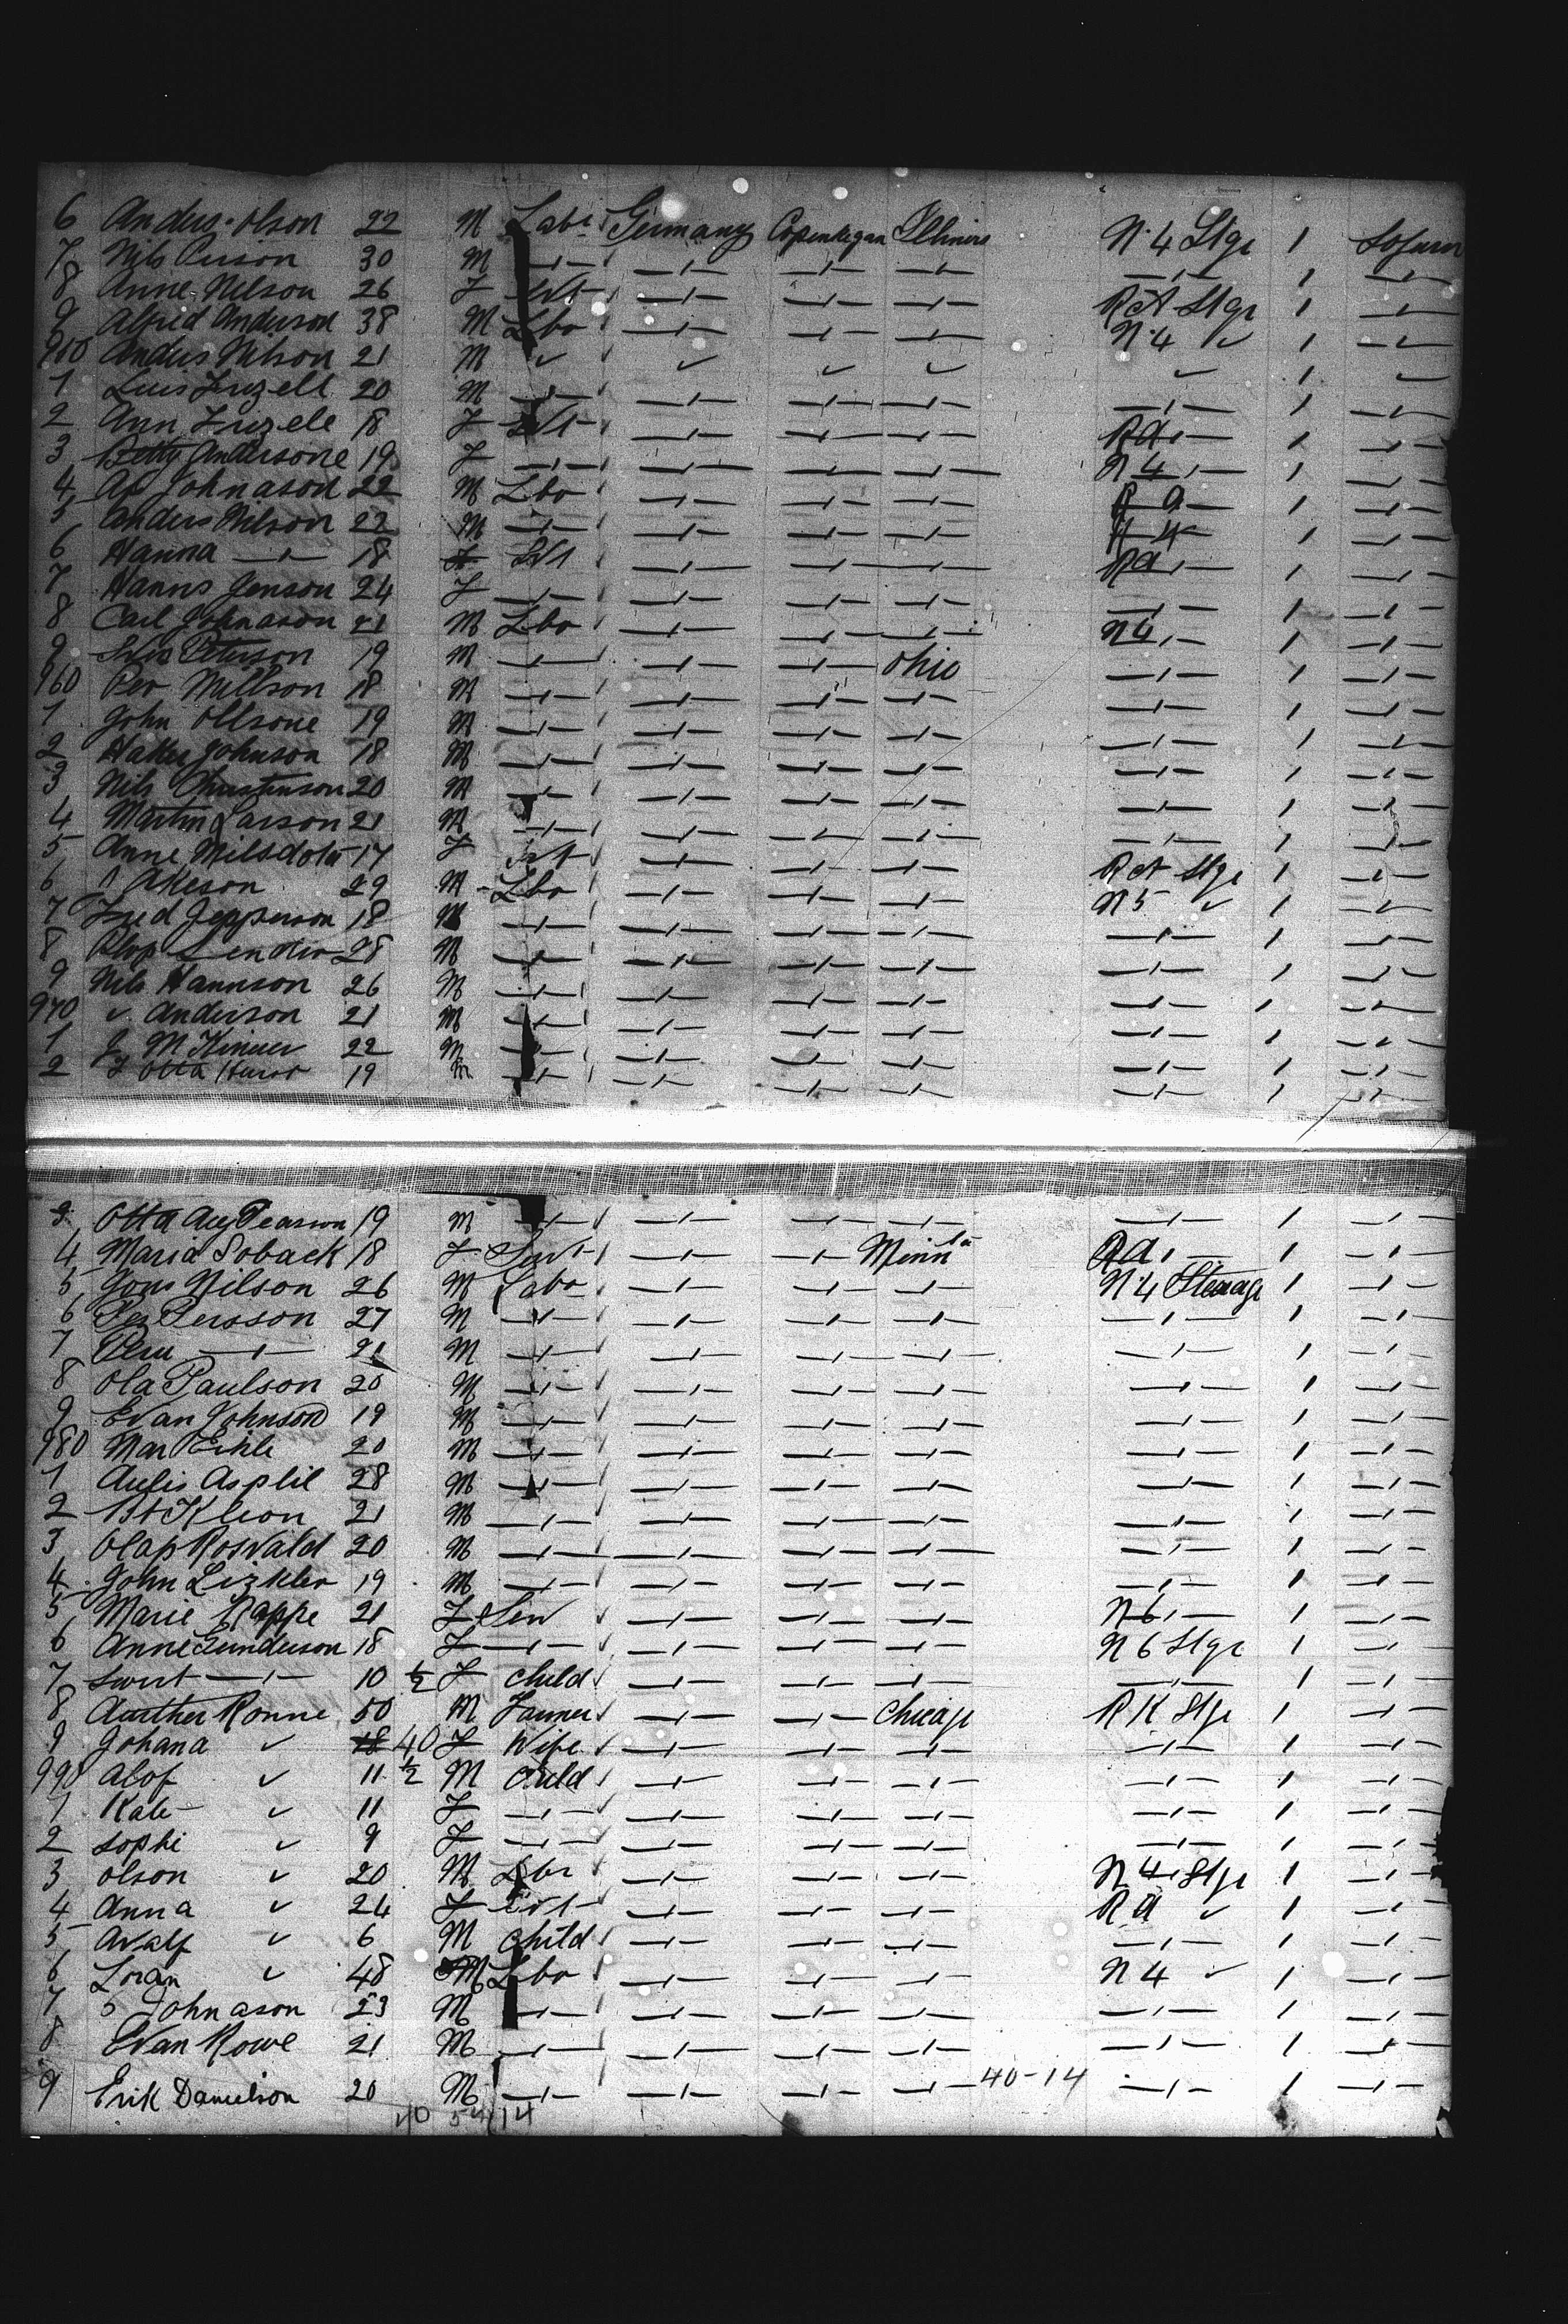 6 Anders Olson 22 M Labr Germany Copenhegan Illinois N 4 Stge 1 Sojurn
7 Nils Person 30 M —ı— —ı— —ı— —ı— —ı— 1 —ı—
8 Anne Nelson 26 F Svt —ı— —ı— —ı— R A Stge 1 —ı—
9 Alfred Anderson 38 M Lbo —ı— —ı— —ı— N 4 ✓ 1 —ı—
950 Anders Nilson 21 M ✓ ✓ ✓ ✓ ✓ 1 ✓
1 Luis Frizell 20 M —ı— —ı— —ı— —ı— —ı— 1 —ı—
2 Ann Frizele 18 F Svt —ı— —ı— —ı— R A —ı— 1 —ı—
3 Betty Andersone 19 F —ı— —ı— —ı— —ı— N 4 —ı— 1 —ı—
4 Johnason 22 M Lbo —ı— —ı— —ı— R A — 1 —ı—
5 Anders Nilson 22 M —ı— —ı— —ı— —ı— N 4 1 —ı—
6 Hanna —ı— 18 F Svt —ı— —ı— —ı— R A —ı— 1 —ı—
7 Hanns Jenson 24 F —ı— —ı— —ı— —ı— —ı— 1 —ı—
8 Carl Johnason 21 M Lbo —ı— —ı— —ı— N 4 —ı— 1 —ı—
9 Peterson 19 M —ı— —ı— —ı— Ohio —ı— 1 —ı—
960 Per Nillson 18 M —ı— —ı— —ı— —ı— —ı— 1 —ı—
1 John Ollsone 19 M —ı— —ı— —ı— —ı— —ı— 1 —ı—
2 Johnson 18 M —ı— —ı— —ı— —ı— —ı— 1 —ı—
3 Nils Christenson 20 M —ı— —ı— —ı— —ı— —ı— 1 —ı—
4 Martin Larson 21 M —ı— —ı— —ı— —ı— —ı— 1 —ı—
5 Anne Nilsdoter 17 F Svt —ı— —ı— —ı— R A Stge 1 —ı—
6 Akeson 29 M Lbo —ı— —ı— —ı— N 5 ✓ 1 —ı—
7 Fred Jepperson 18 M —ı— —ı— —ı— —ı— —ı— 1 —ı—
8 Olop 28 M —ı— —ı— —ı— —ı— —ı— 1 —ı—
9 Nils Hannson 26 M —ı— —ı— —ı— —ı— —ı— 1 —ı—
970 ✓ Anderson 21 M —ı— —ı— —ı— —ı— —ı— 1 —ı—
1 J M 22 M —ı— —ı— —ı— —ı— —ı— 1 —ı—
2 Otta 19 M —ı— —ı— —ı— —ı— —ı— 1 —ı—
3 Otta Aug Pearson 19 M —ı— —ı— —ı— —ı— —ı— 1 —ı—
4 Maria Soback 18 F Servt —ı— —ı— Minnta R A —ı— 1 —ı—
5 Jons Nilson 26 M Labo —ı— —ı— —ı— N 4 Steerage 1 —ı—
6 Per Persson 27 M —ı— —ı— —ı— —ı— —ı— 1 —ı—
7 —ı— 21 M —ı— —ı— —ı— —ı— —ı— 1 —ı—
8 Ola Paulson 20 M —ı— —ı— —ı— —ı— —ı— 1 —ı—
9 Evan Johnson 19 M —ı— —ı— —ı— —ı— —ı— 1 —ı—
980 Nar 20 M —ı— —ı— —ı— —ı— —ı— 1 —ı—
1 Asplil 28 M —ı— —ı— —ı— —ı— —ı— 1 —ı—
2 Kleon 21 M —ı— —ı— —ı— —ı— —ı— 1 —ı—
3 Olap Rosvald 20 M —ı— —ı— —ı— —ı— —ı— 1 —ı—
4 John Lizkler 19 M —ı— —ı— —ı— —ı— —ı— 1 —ı—
5 Marie Rappe 21 F Serv —ı— —ı— —ı— N 6 —ı— 1 —ı—
6 Anne Gunderson 18 F —ı— —ı— —ı— —ı— N 6 Stge 1 —ı—
7 —ı— 10 ½ F Child —ı— —ı— —ı— —ı— 1 —ı—
8 Aurther Ronne 50 M Farmer —ı— —ı— Chicago R K Stge 1 —ı—
9 Johana ✓ 18 40 F Wife —ı— —ı— —ı— —ı— 1 —ı—
990 Alof ✓ 11 ½ M Child —ı— —ı— —ı— —ı— 1 —ı—
1 Kate ✓ 11 F —ı— —ı— —ı— —ı— —ı— 1 —ı—
2 Sophi ✓ 9 F —ı— —ı— —ı— —ı— —ı— 1 —ı—
3 Olson ✓ 20 M Lbr —ı— —ı— —ı— N 4 Stge 1 —ı—
4 Anna ✓ 24 F Svt —ı— —ı— —ı— R A ✓ 1 —ı—
5 Avalf ✓ 6 M Child —ı— —ı— —ı— —ı— 1 —ı—
6 Loran ✓ 48 M Lbo —ı— —ı— —ı— N 4 ✓ 1 —ı—
7 S Johnason 23 M —ı— —ı— —ı— —ı— —ı— 1 —ı—
8 Evan Rowe 21 M —ı— —ı— —ı— —ı— —ı— 1 —ı—
9 Erik Danielson 20 M —ı— —ı— —ı— —ı— 40-14 —ı— 1 —ı—
40 54 14